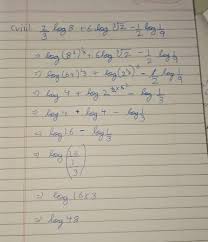 (viii) 2/3 log 8 + 6 log ∛2 - 1/2 log 1/9
⇒ log(8²)^⅓ + 6 log ∛2 - 1/2 log 1/9
⇒ log(64)^⅓ + log(2^⅓)⁶ - 1/2 log 1/9
⇒ log 4 + log 2^(1/3 × 6) - log 1/3
⇒ log 4 + log 4 - log 1/3
⇒ log 16 - log 1/3
⇒ log (16 / 1/3)
⇒ log 16 × 3
⇒ log 48